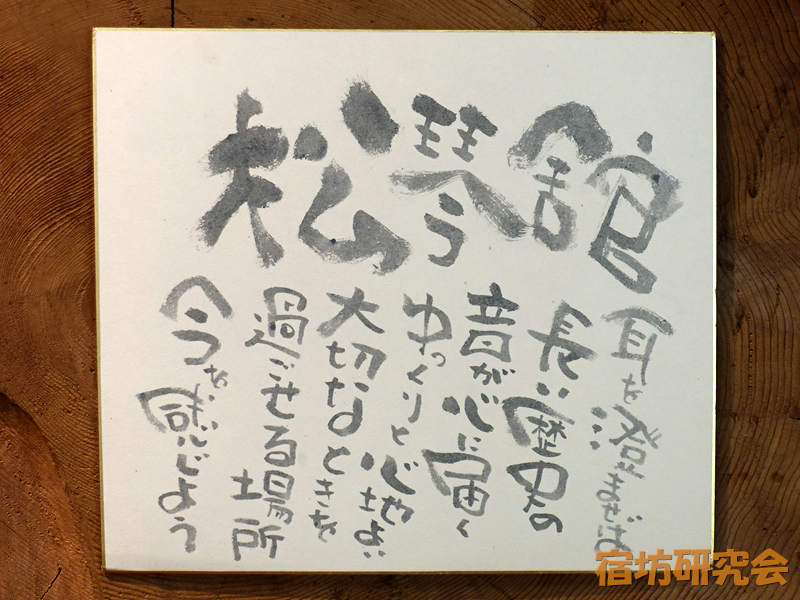 松琴館
耳を澄ませば
長い歴史の
音が心に届く
ゆっくりと心地よい
大切なときを
過ごせる場所
今を感じよう
宿坊研究会